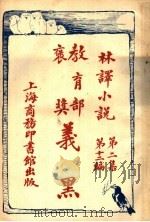 林譯小說
第二集
第十三編
教育部褒獎
義黑
上海商務印書館出版